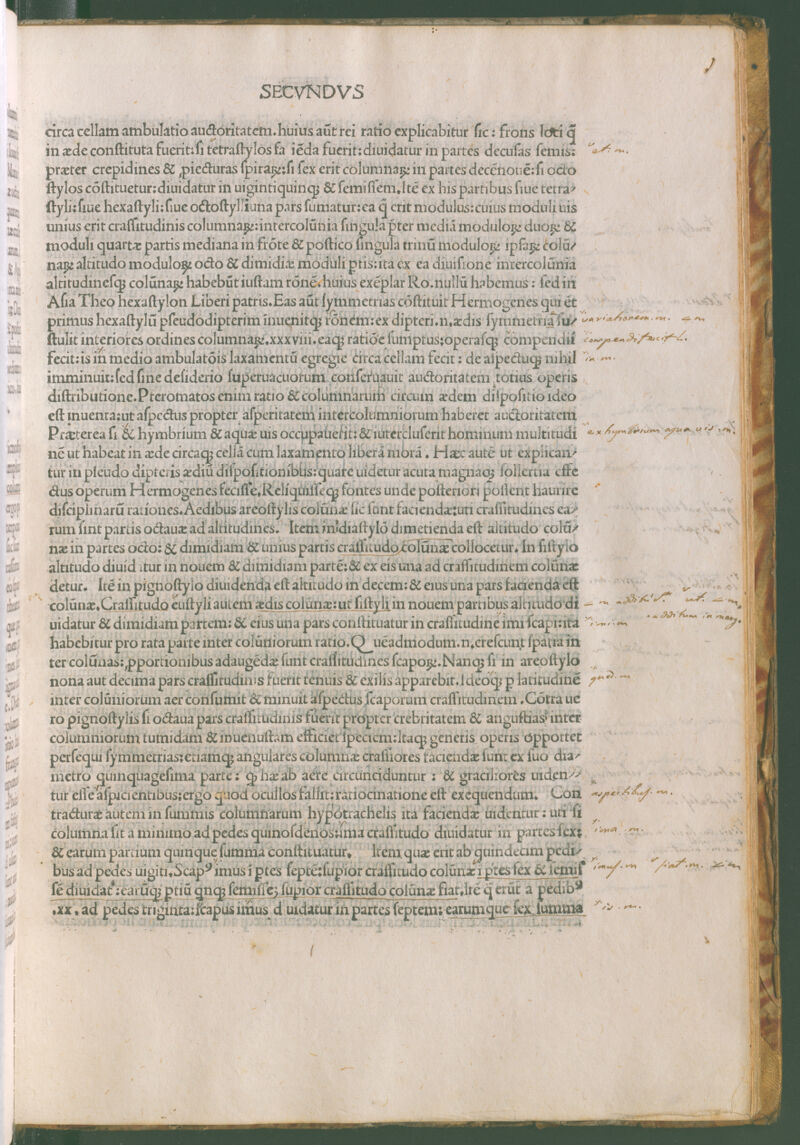 SECVNDVS
circa cellam ambulatio auctoritatem.huius aūt rei ratio explicabitur sic: frons loci q̄
in æde constituta fuerit:si tetrastylos fa iēda fuerit:diuidatur in partes decusas semis:
præter crepidines & ꝓiecturas spiraꝝ:si sex erit columnaꝝ in partes decēnouē:si octo
stylos cōstituetur:diuidatur in uigintiquinqꝫ & semissem.Itē ex his partibus siue tetra-
styli:siue hexastyli:siue octostyli una pars sumatur:ea q̄ erit modulus:cuius moduli uis
unius erit crassitudinis columnaꝝ:intercolūnia singula p̄ter mediā moduloꝝ duoꝝ &
moduli quartæ partis mediana in frōte & postico singula trinū moduloꝝ ipsaꝝ colū-
naꝝ altitudo moduloꝝ octo & dimidiæ moduli ptis:ita ex ea diuisione intercolūnia
altitudinesqꝫ colūnaꝝ habebūt iustam rōnē.huius exēplar Ro.nullū habemus: sed in
Asia Theo hexastylon Liberi patris.Eas aūt symmetrias cōstituit Hermogenes qui ēt
primus hexastylū pseudodipterim inuenitqꝫ rōnem:ex dipteri.n.ædis symmetria su-
stulit interiores ordines columnaꝝ.xxxviii.eaqꝫ ratiōe sumptus:operasqꝫ compendii
fecit:is in medio ambulatōis laxamentū egregie circa cellam fecit: de aspectuqꝫ nihil
imminuit:sed sine desiderio superuacuorum conseruauit auctoritatem totius operis
distributione.Pteromatos enim ratio & columnarum circum ædem dispositio ideo
est inuenta:ut aspectus propter asperitatem intercolumniorum haberet auctoritatem
Præterea si & hymbrium & aquæ uis occupauerit:& iutercluserit hominum multitudi
nē ut habeat in æde circaqꝫ cellā cum laxamento liberā morā. Hæc autē ut explican-
tur in pseudo dipteris ædiū dispositionibus:quare uidetur acuta magnaqꝫ sollertia effe
ctus operum Hermogenes fecisse,Reliquisseqꝫ fontes unde posteriori possent haurire
disciplinarū rationes.Aedibus areostylis colūnæ sic sunt faciendæ:uti crassitudines ea-
rum sint partis octauæ ad altitudines. Item in diastylo dimetienda est altitudo colū-
næ in partes octo: & dimidiam & unius partis crassitudo colūnæ collocetur. In sistylo
altitudo diuid itur in nouem & dimidiam partē:& ex eis una ad crassitudinem colūnæ
detur. Itē in pignostylo diuidenda est altitudo in decem:& eius una pars facienda est
colūnæ.Crassitudo eustyli autem ædis colūnæ:ut sistyli in nouem partibus altitudo di
uidatur & dimidiam partem: & eius una pars constituatur in crassitudine imi scapi:ita
habebitur pro rata parte inter colūniorum ratio.Queadmodum.n.crescunt spatia in
ter colūnas:ꝓportionibus adaugēdæ sunt crassitudines scapoꝝ.Nanqꝫ si in areostylo
nona aut decima pars crassitudinis fuerit tenuis & exilis apparebit.Ideoqꝫ p latitudinē
inter colūniorum aer consumit & minuit aspectus scaporum crassitudinem .Cōtra ue
ro pignostylis si octaua pars crassitudinis fuerit propter crebritatem & angustias inter
columniorum tumidam & inuenustam efficiet speciem:Itaqꝫ generis operis opportet
persequi symmetrias:etiamqꝫ angulares columnæ crassiores faciendæ sunt ex suo dia-
metro quinquagesima parte: qꝫ hæ ab aere circunciduntur : & graciliores uiden-
tur esse aspicientibus:ergo quod ocullos fallit:ratiocinatione est exequendum. Con
tracturæ autem in summis columnarum hypotrachelis ita faciendæ uidentur: uti si
columna sit a minimo ad pedes quinosdenos:ima crassitudo diuidatur in partes sex:
& earum partium quinque summa constituatur. Item quæ erit ab quindecim pedi-
bus ad pedes uigiti.Scapꝰ imus ī ptes septē:supior crassitudo colūnæ ī ptes sex & semis
sē diuidat :earūqꝫ ptiū qnqꝫ semisse; supior crassitudo colūnæ fiat.Itē q̄ erūt a pedibꝰ
.xx. ad pedes triginta:scapus imus d uidatur in partes septem: earumque sex summa